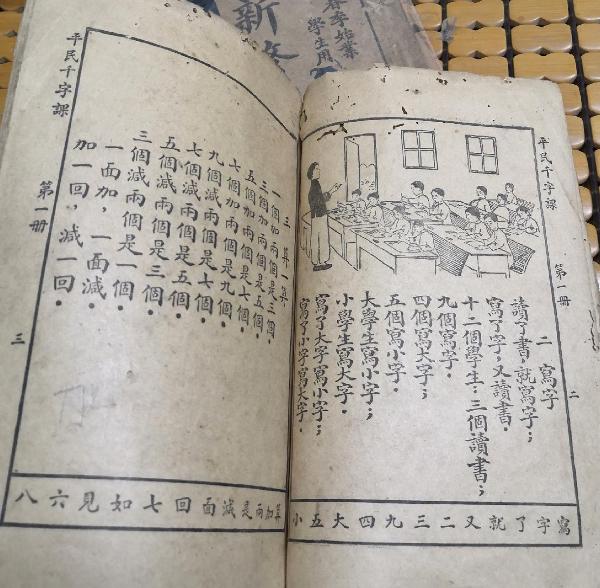 春季始業
學生用
新
平民千字課
第一冊
二
二 寫字
讀了書，就寫字；
寫了字，又讀書．
十二個學生：三個讀書；
九個寫字．
四個寫大字；
五個寫小字．
大學生寫小字；
小學生寫大字．
寫了大字寫小字；
寫了小字寫大字．
寫字了就又二三九四大五小
三 算一算
一個加兩個是三個．
三個加兩個是五個．
五個加兩個是七個．
七個加兩個是九個．
九個減兩個是七個．
七個減兩個是五個．
五個減兩個是三個．
三個減兩個是一個．
一面加，一面減．
加一回，減一回．
算加兩是減面回七如見六八
平民千字課
第一冊
三